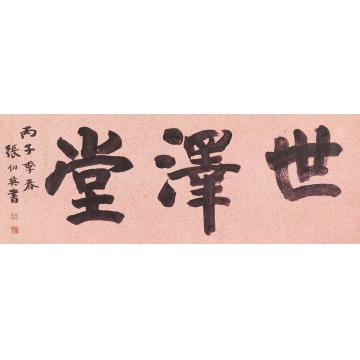 世澤堂
丙子季春
張伯英書